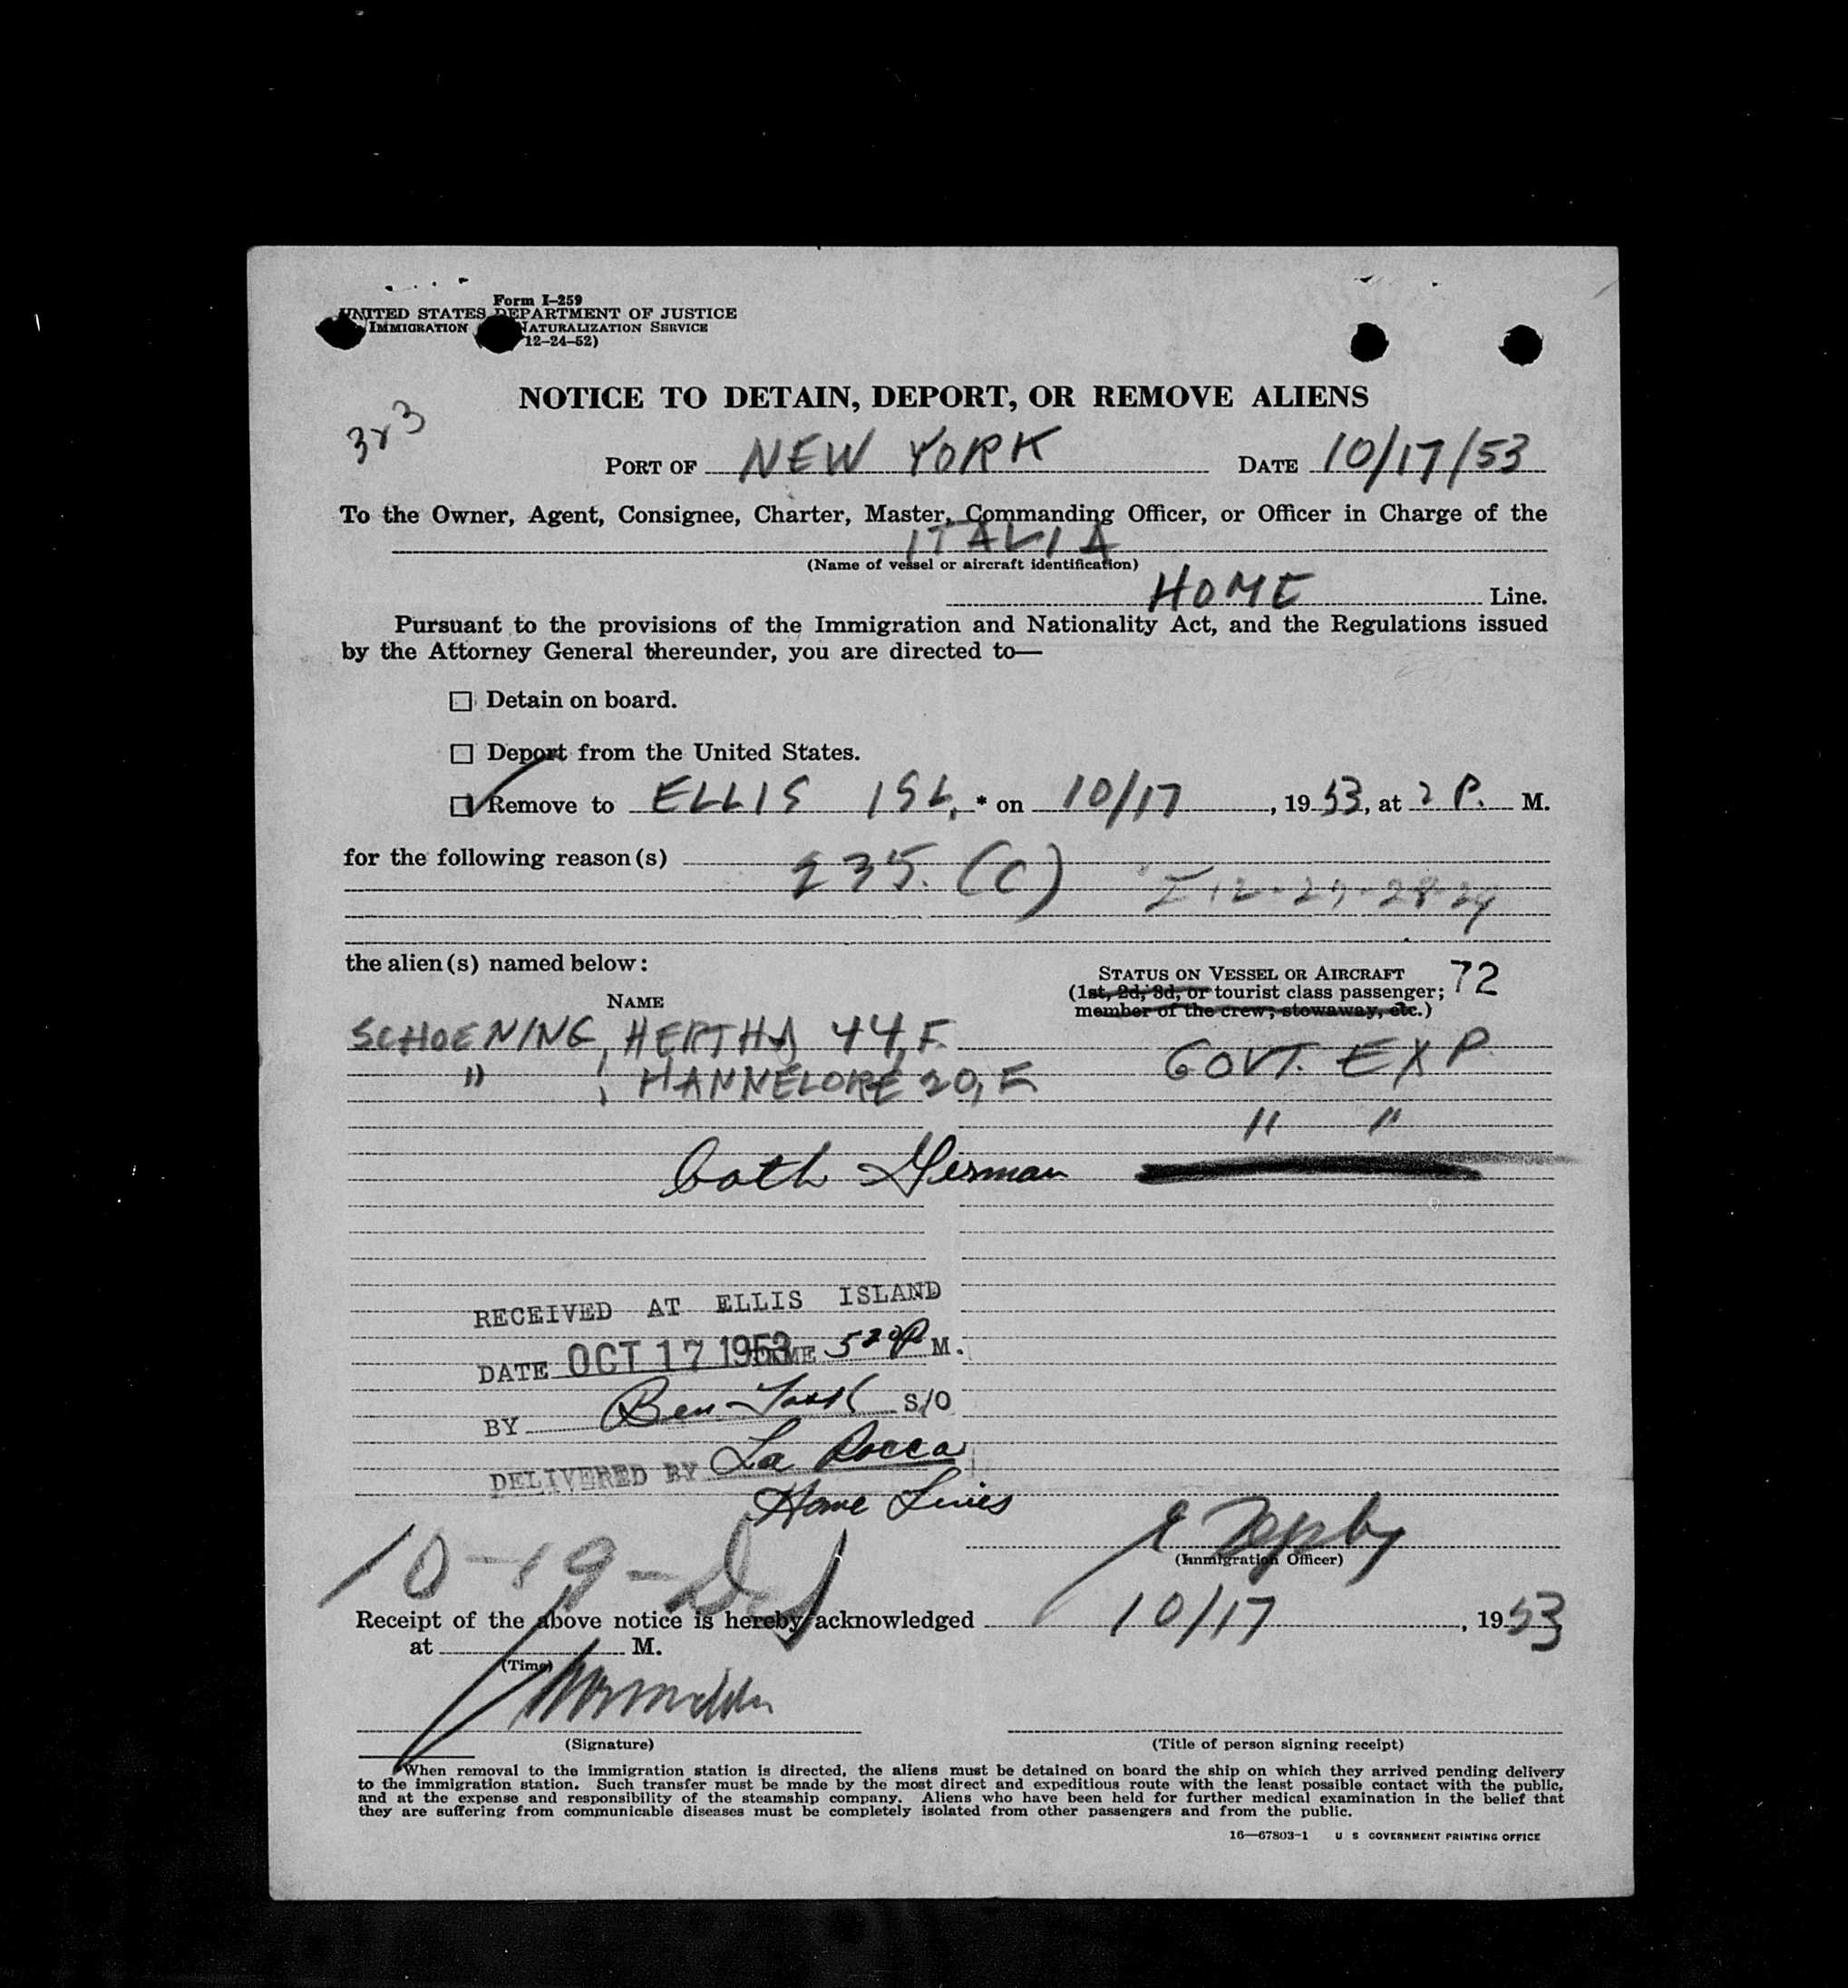 Form I-259
UNITED STATES DEPARTMENT OF JUSTICE
IMMIGRATION NATURALIZATION SERVICE
12-24-52)
NOTICE TO DETAIN, DEPORT, OR REMOVE ALIENS
3x3
PORT OF NEW YORK DATE 10/17/53
To the Owner, Agent, Consignee, Charter, Master, Commanding Officer, or Officer in Charge of the
ITALIA
(Name of vessel or aircraft identification)
HOME Line.
Pursuant to the provisions of the Immigration and Nationality Act, and the Regulations issued
by the Attorney General thereunder, you are directed to—
☐ Detain on board.
☐ Deport from the United States.
☑ Remove to ELLIS ISL. * on 10/17, 1953, at 2 P. M.
for the following reason(s)
235. (C)
the alien(s) named below:
STATUS ON VESSEL OR AIRCRAFT 72
NAME (1st, 2d, 3d, or tourist class passenger;
member of the crew; stowaway, etc.)
SCHOENING, HERTHA 44, F.
GOVT. EXP
" , HANNELORE 20, F.
" "
both German
RECEIVED AT ELLIS ISLAND
DATE OCT 17 1953 TIME 520 P M.
BY Ben S/O
DELIVERED BY La Rocca
Home Lines
(Immigration Officer)
10-19-
Receipt of the above notice is hereby acknowledged 10/17, 1953
at M.
(Time)
(Signature) (Title of person signing receipt)
*When removal to the immigration station is directed, the aliens must be detained on board the ship on which they arrived pending delivery
to the immigration station. Such transfer must be made by the most direct and expeditious route with the least possible contact with the public,
and at the expense and responsibility of the steamship company. Aliens who have been held for further medical examination in the belief that
they are suffering from communicable diseases must be completely isolated from other passengers and from the public.
16—67803-1 U S GOVERNMENT PRINTING OFFICE